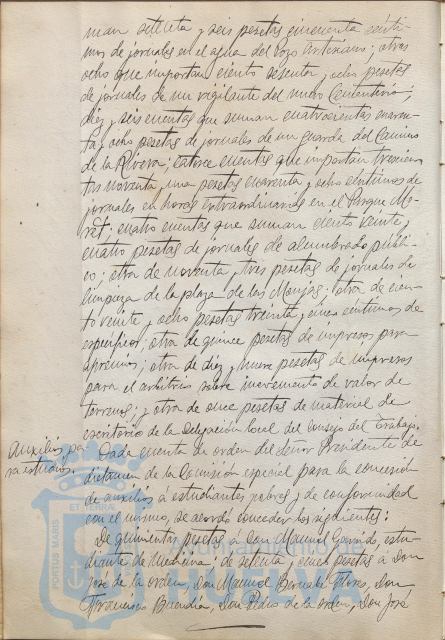 man setenta y seis pesetas cincuenta cénti-
mos de jornales en el agua del pozo artesiano; otras
ocho que importan ciento sesenta y ocho pesetas
de jornales de un vigilante del nuevo Cementerio;
diez y seis cuentas que suman cuatrocientas cuaren-
ta y ocho pesetas de jornales de un guarda del Camino
de la Rivera; catorce cuentas que importan trescien-
tas noventa y una pesetas cuarenta y ocho céntimos de
jornales en horas extraordinarias en el Parque Mo-
ret; cuatro cuentas que suman ciento veinte y
cuatro pesetas de jornales de alumbrado públi-
co; otra de noventa y tres pesetas de jornales de
limpieza de la plaza de las Monjas; otra de cien-
to veinte y ocho pesetas treinta y cinco céntimos de
específico; otra de quince pesetas de impresos para
apremios; otra de diez y nueve pesetas de impresos
para el arbitrio sobre incremento de valor de
terrenos; y otra de once pesetas de material de
escritorio de la Delegación local del Consejo del Trabajo.
Auxilios pa-
ra estudios.
Dada cuenta de orden del Señor Presidente de
dictamen de la Comisión especial para la concesión
de auxilios a estudiantes pobres, y de conformidad
con el mismo, se acordó conceder los siguientes:
De quinientas pesetas a don Manuel Garrido, estu-
diante de Medicina: de setenta y cinco pesetas a Don
José de la orden, Don Manuel Bernabé Flores, Don
Francisco Buendía, Don Pedro de la orden, Don José
PORTUS MARIS ET TERRAE
Ayuntamiento de
HUELVA